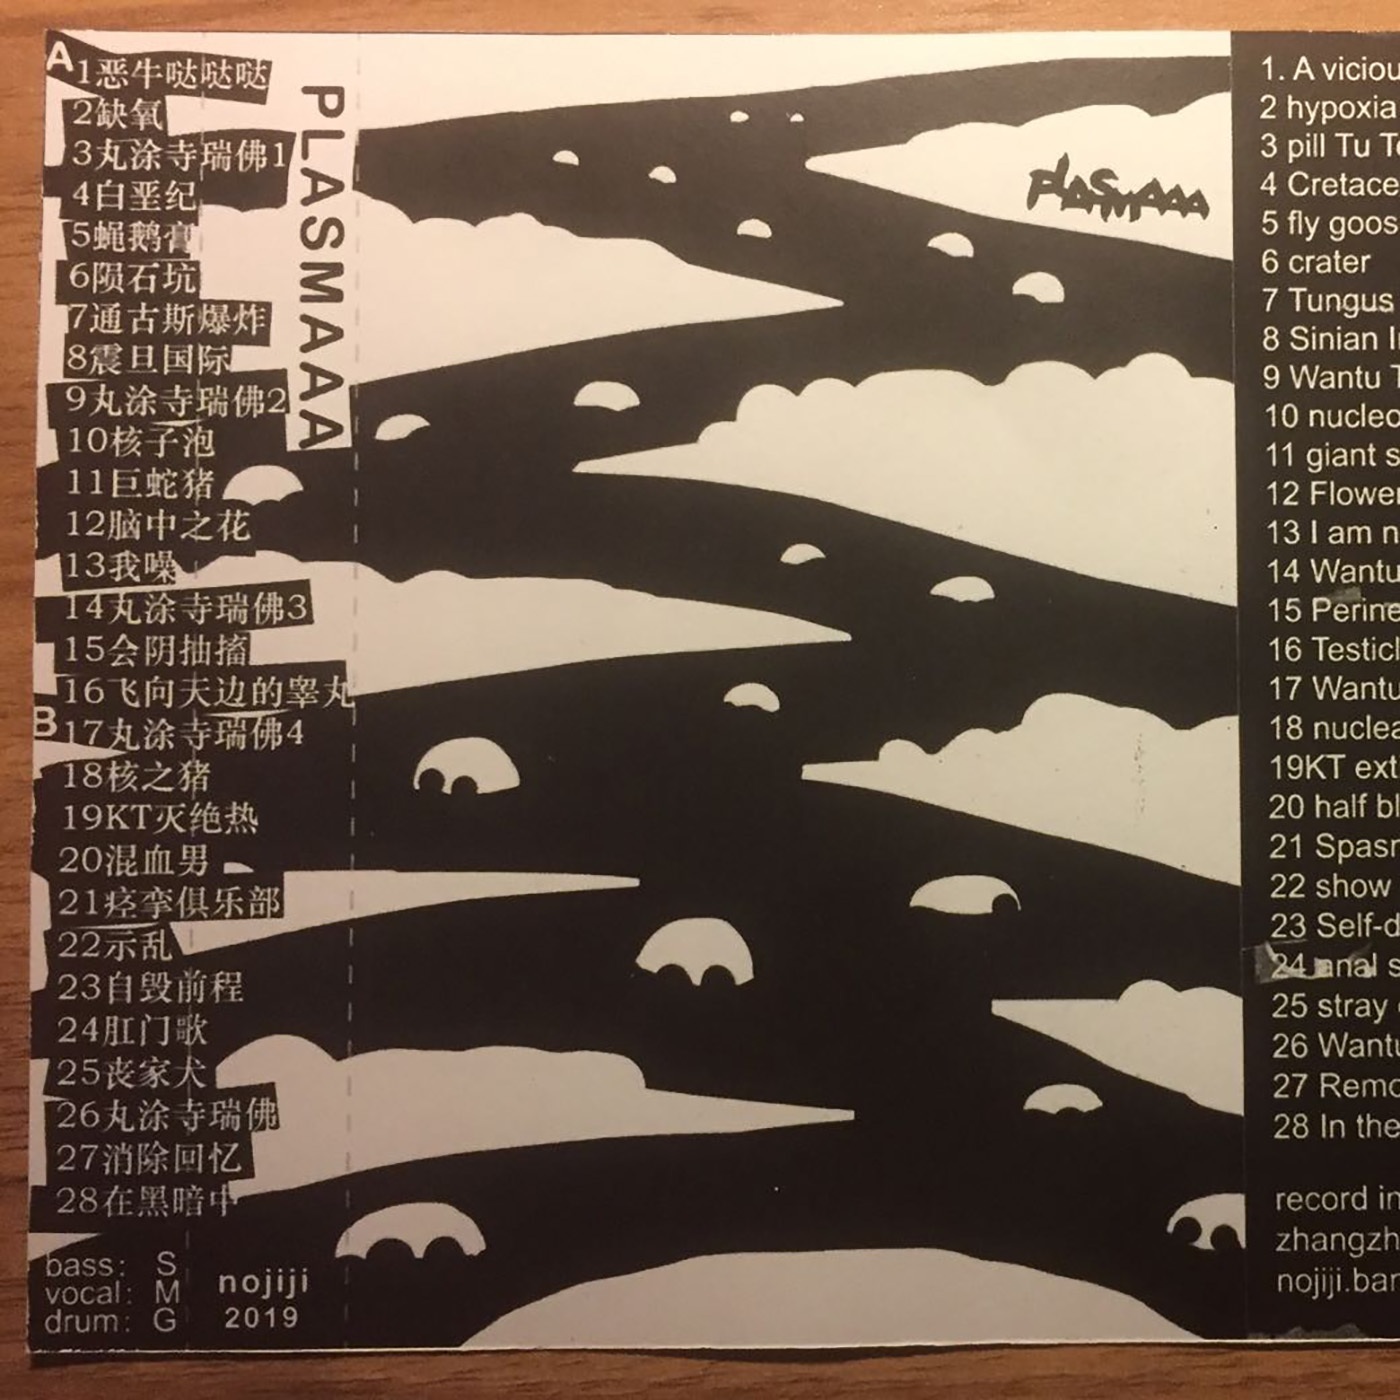 A
1恶牛哒哒哒
2缺氧
3丸涂寺瑞佛1
4白垩纪
5蝇鹅膏
6陨石坑
7通古斯爆炸
8震旦国际
9丸涂寺瑞佛2
10核子泡
11巨蛇猪
12脑中之花
13我噪
14丸涂寺瑞佛3
15会阴抽搐
16飞向天边的睾丸
B
17丸涂寺瑞佛4
18核之猪
19KT灭绝热
20混血男
21痉挛俱乐部
22示乱
23自毁前程
24肛门歌
25丧家犬
26丸涂寺瑞佛
27消除回忆
28在黑暗中
bass: S
vocal: M
drum: G
nojiji
2019
PLASMAAA
PLASMAAA
1. A viciou
2 hypoxia
3 pill Tu Te
4 Cretace
5 fly goos
6 crater
7 Tungus
8 Sinian I
9 Wantu T
10 nucleo
11 giant s
12 Flower
13 I am n
14 Wantu
15 Perine
16 Testicl
17 Wantu
18 nuclea
19KT ext
20 half bl
21 Spasm
22 show
23 Self-d
24 anal s
25 stray
26 Wantu
27 Remo
28 In the
record in
zhangzh
nojiji.ban